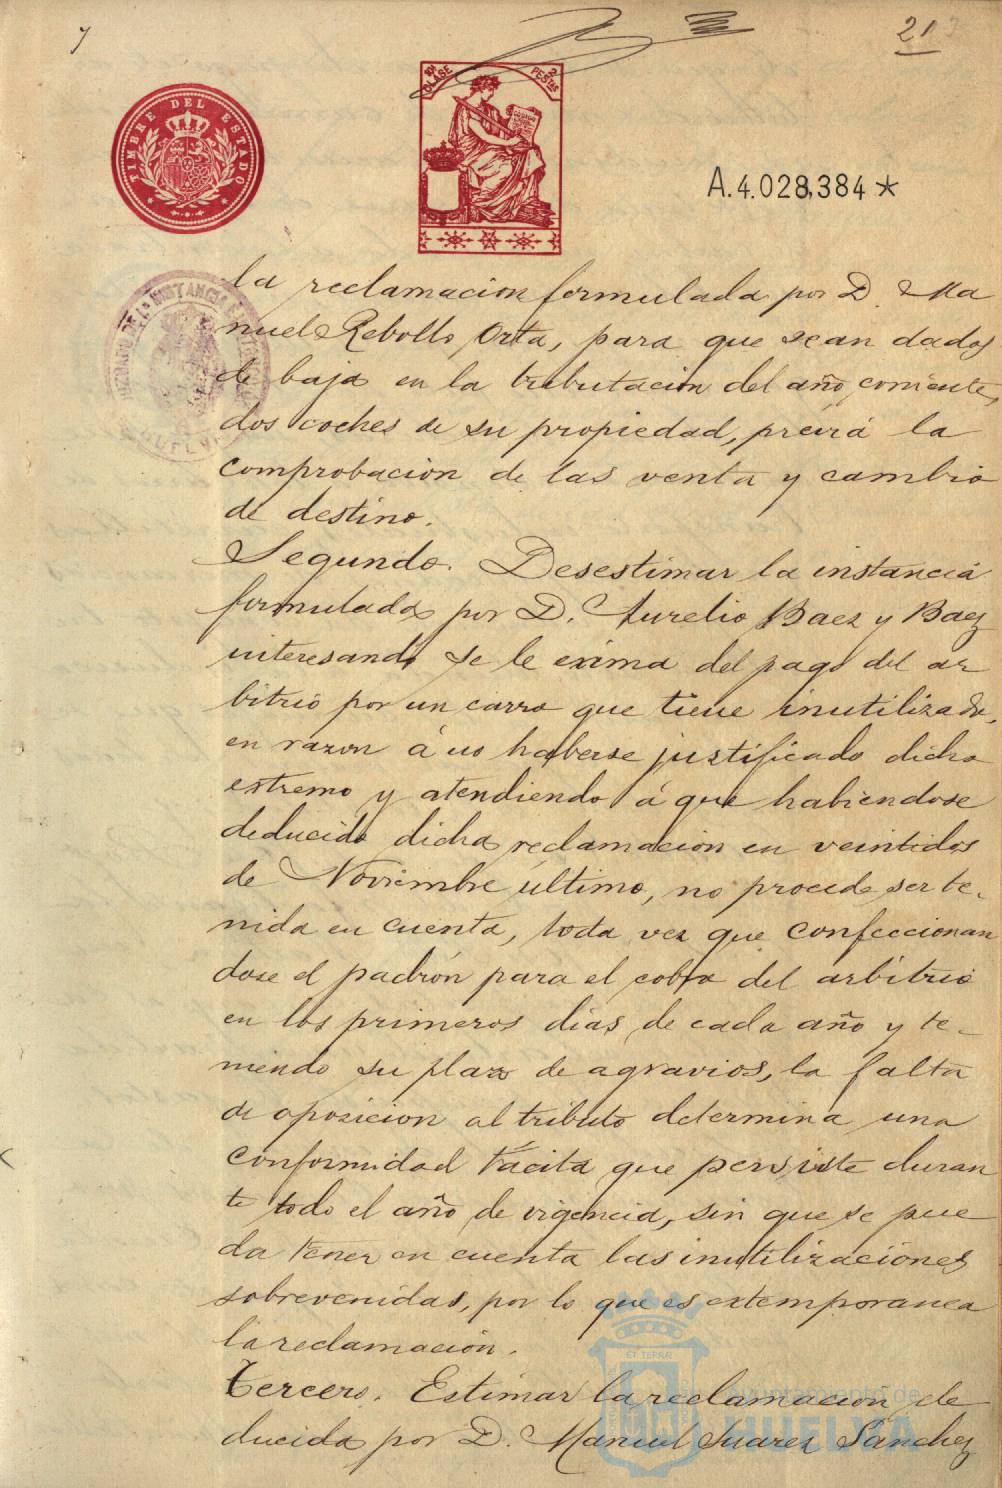 7
21
TIMBRE DEL ESTADO
10ª CLASE
2 PESETAS
A.4.028,384 *
JUZGADO DE 1ª INSTANCIA E
HUELVA
la reclamacion formulada por D. Ma
nuel Rebollo Orta, para que sean dados
de baja en la tributacion del año corriente,
dos coches de su propiedad, previá la
comprobacion de las venta y cambio
de destino.
Segundo. Desestimar la instancia
formulada por D. Aurelio Baez y Baez
interesando se le exima del pago del ar
bitrio por un carro que tiene inutilizado,
en razon á no haberse justificado dicho
extremo y atendiendo á que habiendose
deducido dicha reclamacion en veintidos
de Noviembre último, no procede ser te-
nida en cuenta, toda vez que confeccionan
dose el padrón para el cobro del arbitrio
en los primeros dias de cada año y te-
niendo su plazo de agravios, la falta
de oposicion al tributo determina una
conformidad tácita que persiste duran
te todo el año de vigencia, sin que se pue
da tener en cuenta las inutilizaciones
sobrevenidas, por lo que es extemporanea
la reclamación.
Tercero. Estimar la reclamacion de
ducida por D. Manuel Suarez Sanchez
Ayuntamiento de
HUELVA